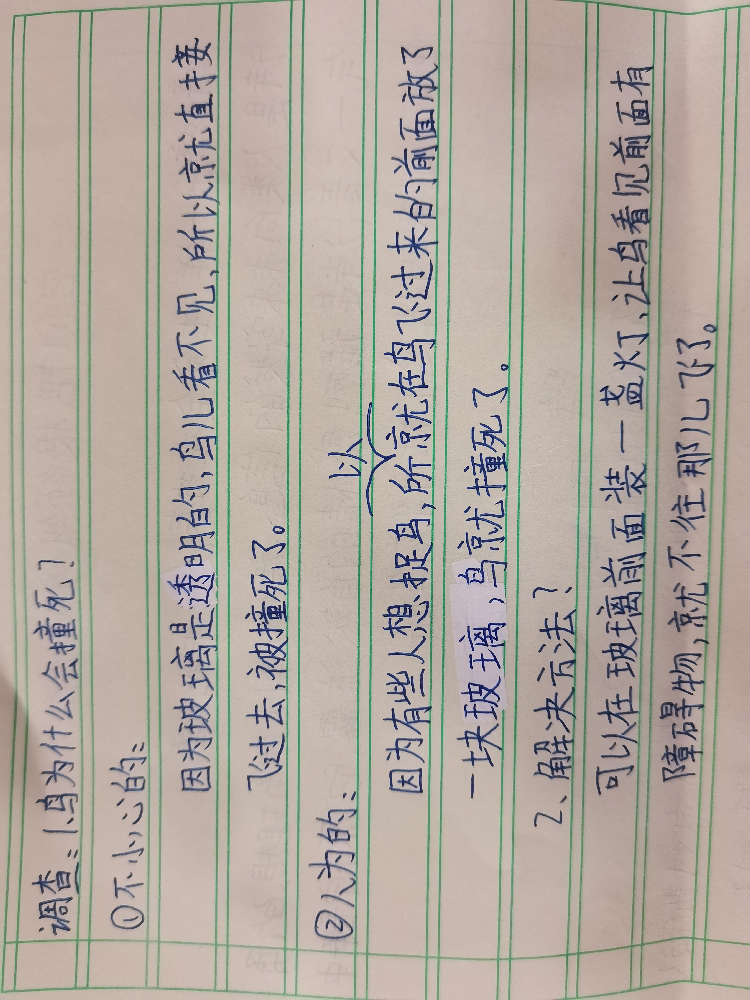 调查:1、鸟为什么会撞死?
①不小心的:
因为玻璃是透明的,鸟儿看不见,所以就直接
飞过去,被撞死了。
②人为的:
因为有些人想捉鸟,所以就在鸟飞过来的前面放了
一块玻璃,鸟就撞死了。
2、解决方法?
可以在玻璃前面装一盏灯,让鸟看见前面有
障碍物,就不往那儿飞了。